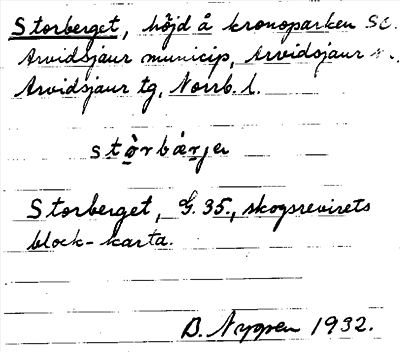 Storberget, höjd å kronoparken SO.
Arvidsjaur municip, Arvidsjaur
Arvidsjaur tg, Norrb. l.
stòrbærjer
Storberget, G. 35., skogsrevirets
block-karta.
B. Nygren 1932.